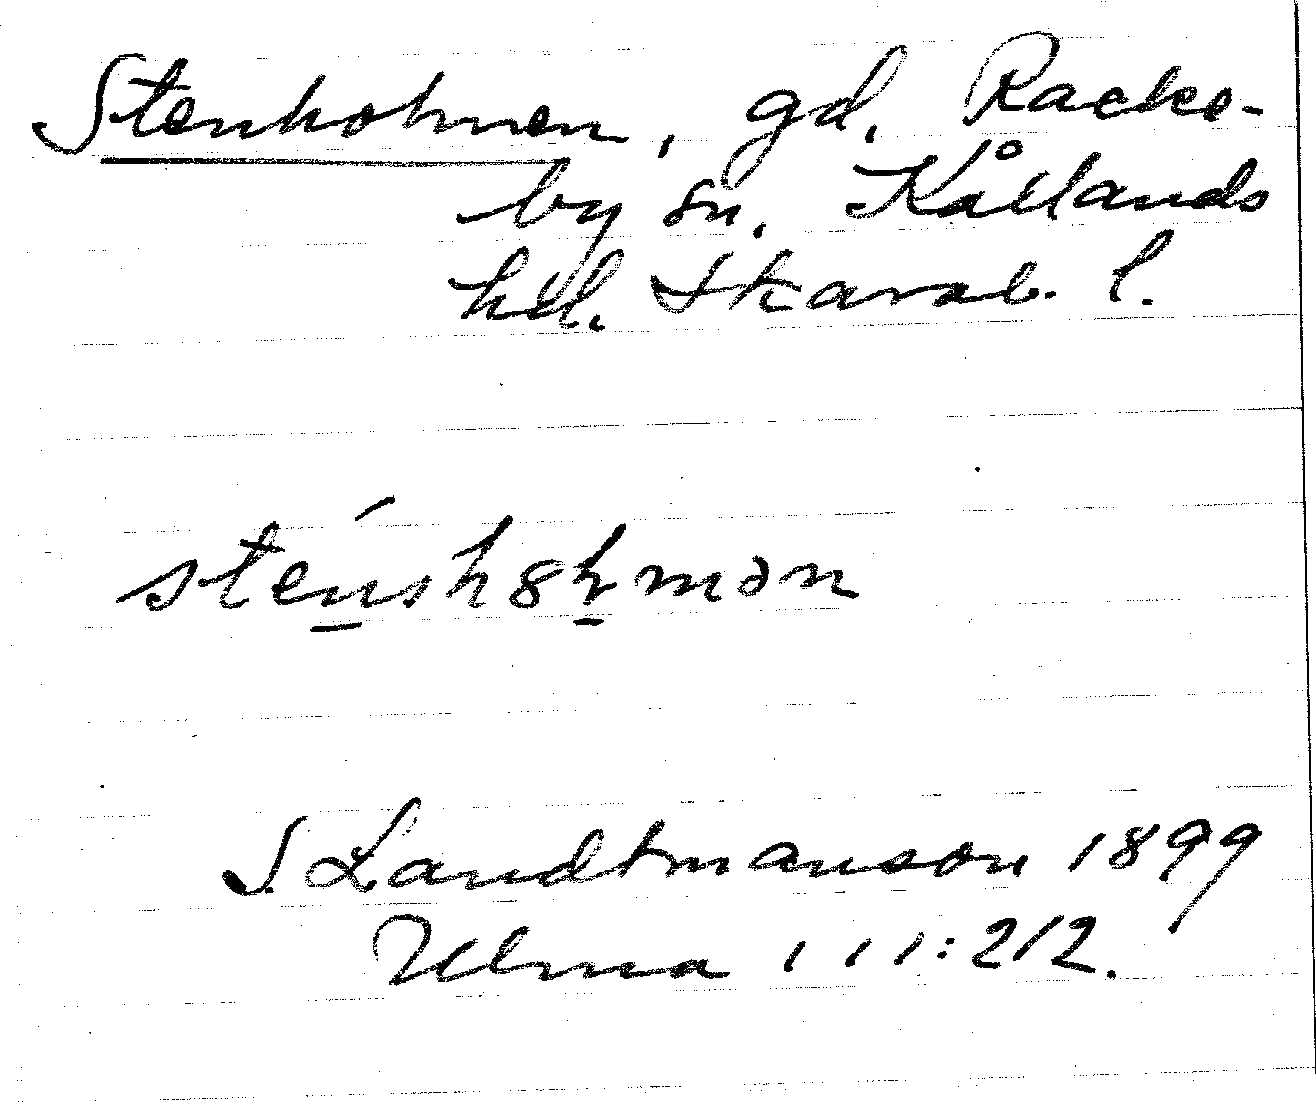 Stenholmen, gd, Racke-
by sn, Kållands
hd. Skarab. l.
S. Landtmanson 1899
Ulma 111:212.